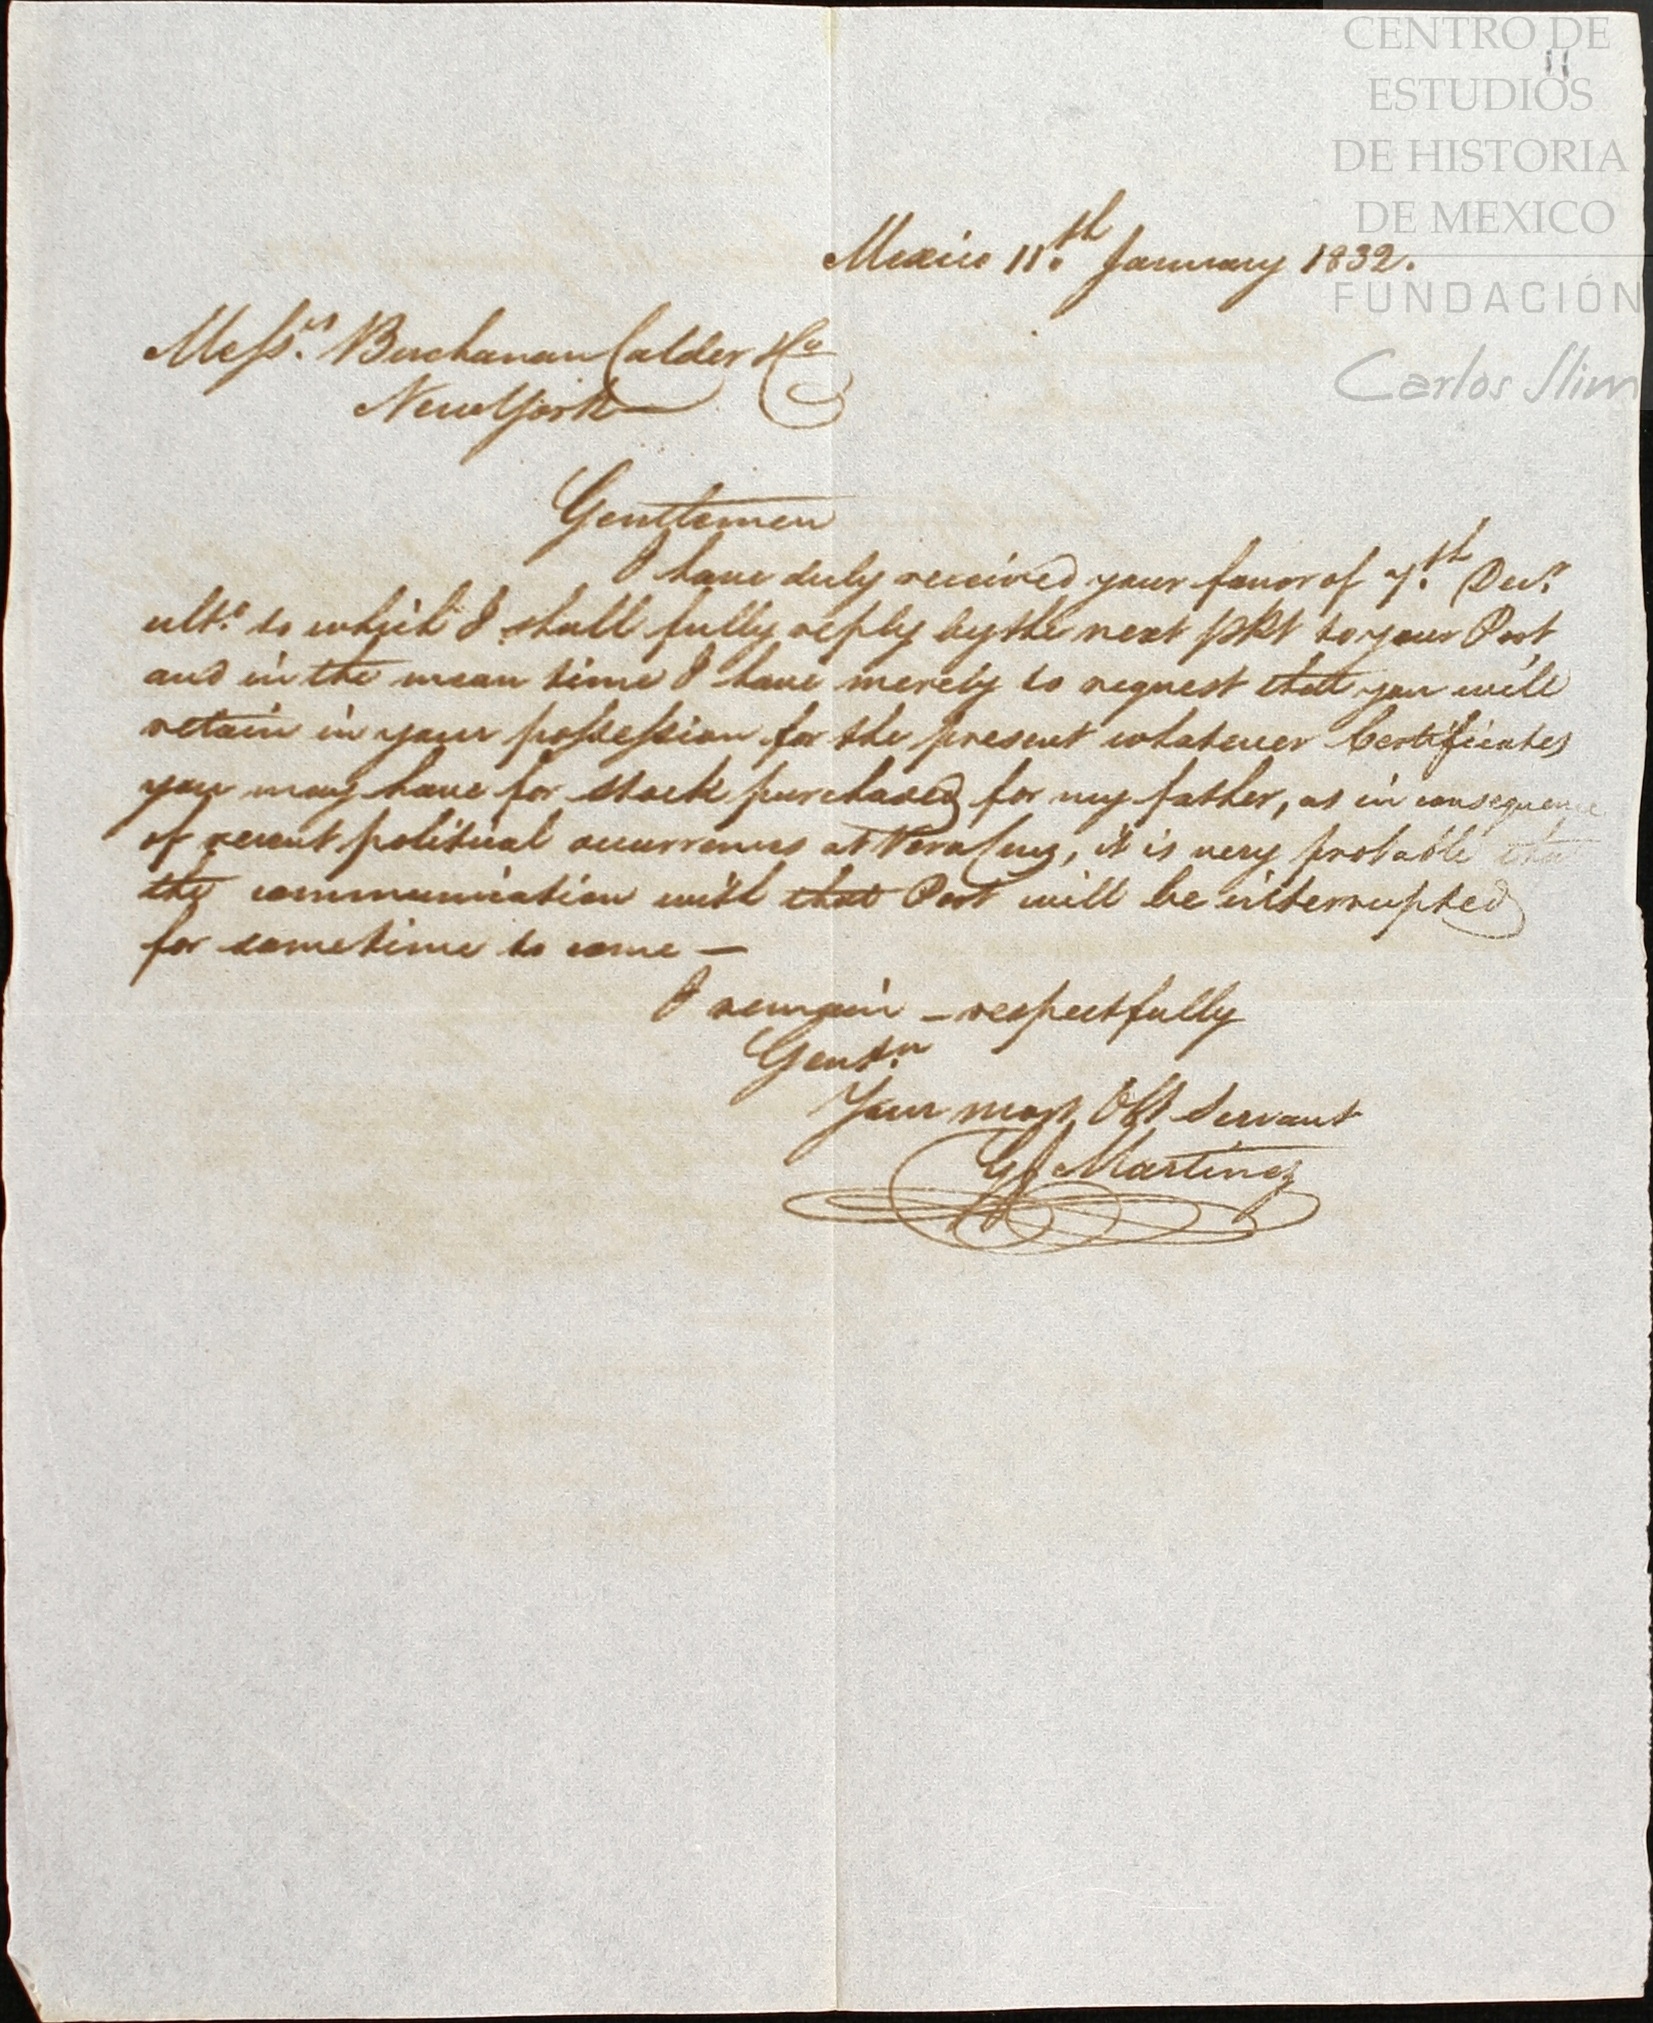 CENTRO DE
ESTUDIOS
DE HISTORIA
DE MEXICO
FUNDACIÓN
Carlos Slim
11
Mexico 11.th January 1832.
Messrs. Buchanan Calder & Co
New York
Gentlemen
I have duly received your favor of 7.th Decr.
ulto. to which I shall fully reply by the next pkt to your Port
and in the mean time I have merely to request that you will
retain in your possession for the present whatever Certificates
you may have for stock purchased for my father, as in consequence
of recent political occurrences at Vera Cruz, it is very probable that
the communication with that Port will be interrupted
for sometime to come —
I remain – respectfully
Gentn.
Your most Obt Servant
GJ Martinez